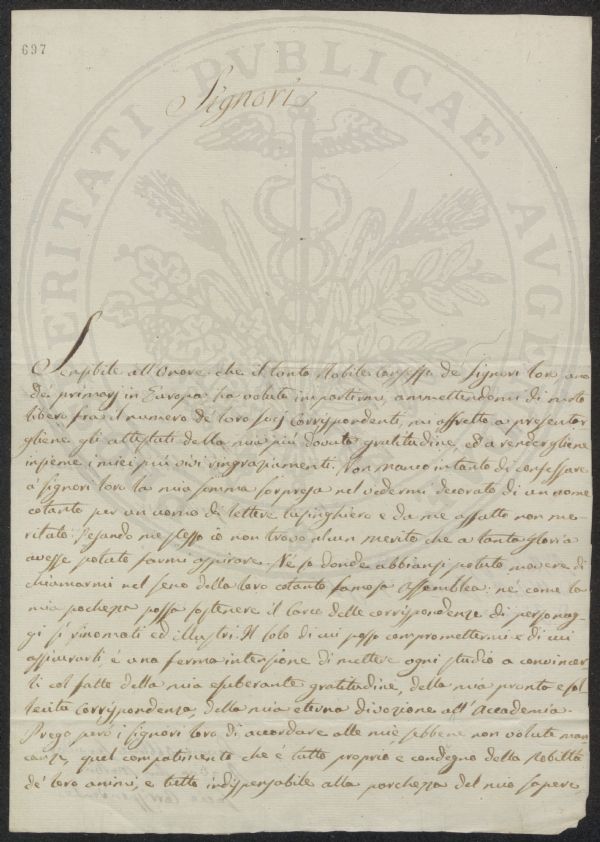 697
VERITATI PVBLICAE AVGENDAE
Signori
Sensibile all'Onore che il tanto Nobile Consesso de' Signori loro uno
dei primarj in Europa ha voluto impartirmi, ammettendomi di moto
libero fra il numero de' loro Socj Corrispondenti, mi affretto a presentar
gliene gli attestati della mia più dovuta gratitudine, ed a rendergliene
insieme i miei più vivi ringraziamenti. Non manco intanto di confessare
a' Signori loro la mia somma sorpresa nel vedermi decorato di un nome
cotanto per un uomo di lettere lusinghiero e da me affatto non me-
ritato. Pesando me stesso io non trovo alcun merito che a tanta gloria
avesse potuto farmi aspirare. Né so donde abbiansi potuto movere di
chiamarmi nel seno della loro cotanto famosa Assemblea: né come la
mia pochezza possa sostenere il Carco delle corrispondenze di personag-
gi sì rinomati ed illustri. Il solo di cui posso compromettermi e di cui
assicurarli è una ferma intenzione di mettere ogni studio a convincer-
li col fatto della mia esuberante gratitudine, della mia pronta e sol
lecita Corrispondenza, della mia eterna divozione all'Accademia.
Prego però i Signori loro di accordare alle mie, sebbene non volute man
canze, quel compatimento che è tutto proprio e condegno della Nobiltà
de' loro animi, e tutto indispensabile alla pochezza del mio sapere